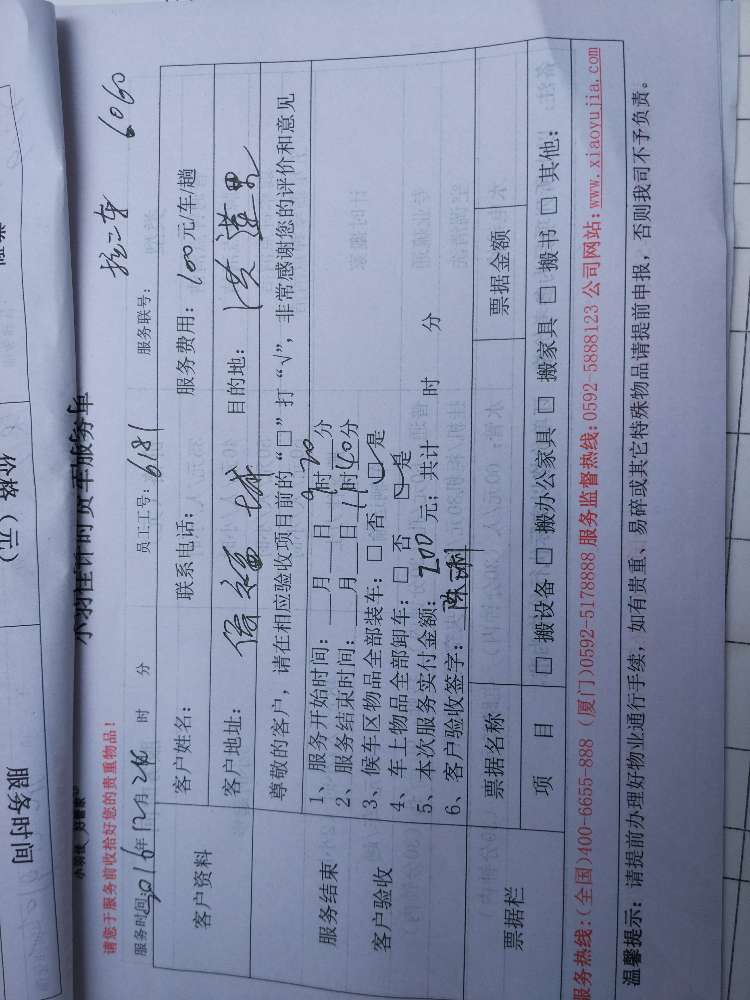 拉二车 6060
小羽佳 好管家
小羽佳计时货车服务单
请您于服务前收拾好您的贵重物品!
服务时间:2016年12月24日 时 分 员工工号:6181 服务联号:
客户资料
客户姓名: 联系电话: 服务费用:100元/车/趟
客户地址: 目的地:
服务结束
客户验收
尊敬的客户,请在相应验收项目前的“□”打“√”,非常感谢您的评价和意见
1、服务开始时间:___月___日9时20分
2、服务结束时间:___月___日11时40分
3、候车区物品全部装车:□ 否 □是
4、车上物品全部卸车:□ 否 □是
5、本次服务实付金额:200元;共计 时 分
6、客户验收签字:
票据栏
票据名称 票据金额
项 目 □ 搬设备 □ 搬办公家具 □ 搬家具 □ 搬书 □ 其他:
服务热线:(全国)400-6655-888 (厦门)0592-5178888 服务监督热线:0592-5888123 公司网站:www.xiaoyujia.com
温馨提示:请提前办理好物业通行手续,如有贵重、易碎或其它特殊物品请提前申报,否则我司不予负责。
价格(元)
服务时间